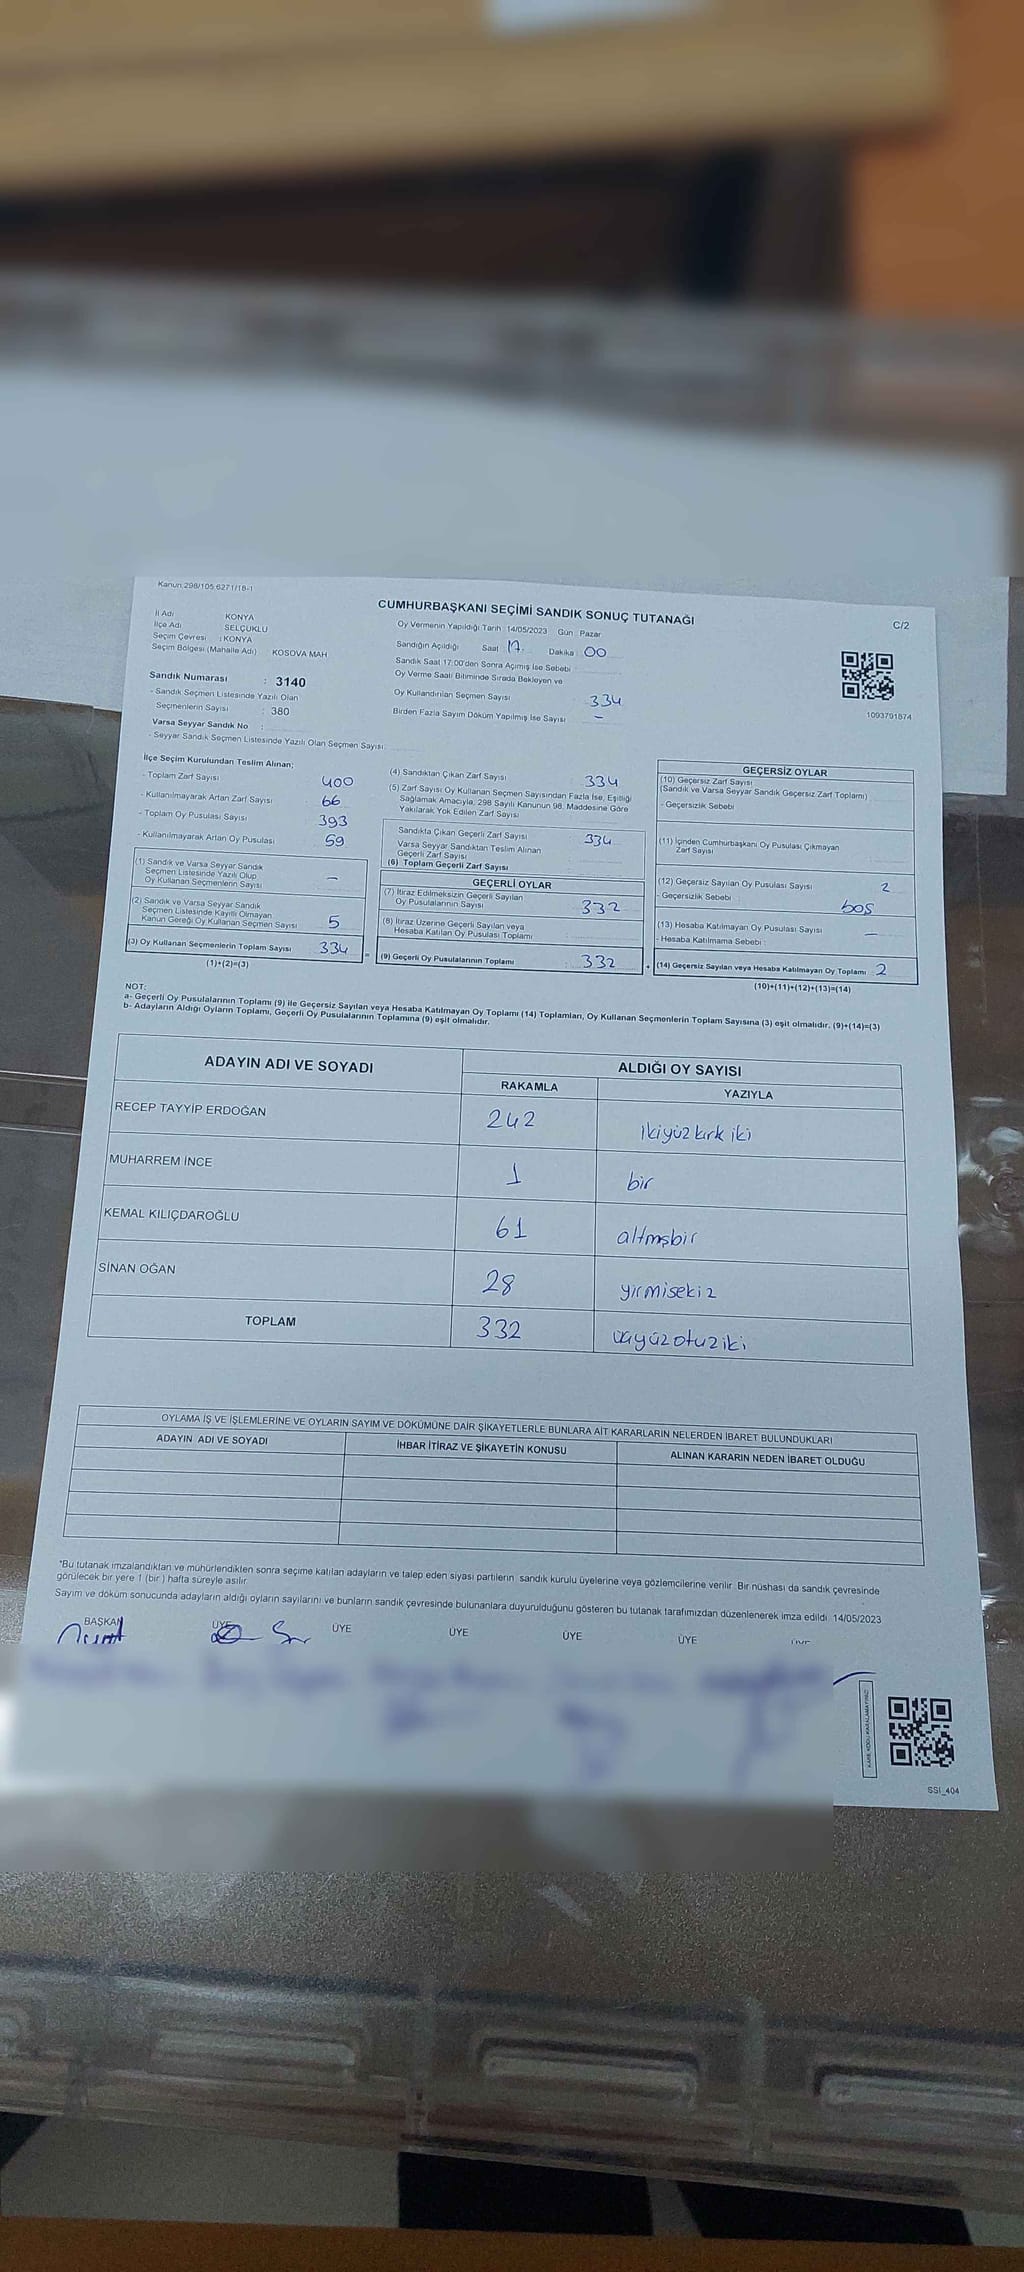 Kanun:298/105.6271/18-1
CUMHURBAŞKANI SEÇİMİ SANDIK SONUÇ TUTANAĞI
C/2
İl Adı KONYA
İlçe Adı SELÇUKLU
Seçim Çevresi : KONYA
Seçim Bölgesi (Mahalle Adı) KOSOVA MAH
Oy Vermenin Yapıldığı Tarih 14/05/2023 Gün Pazar
Sandığın Açıldığı Saat 17 Dakika 00
Sandık Saat 17:00'den Sonra Açımış İse Sebebi
Oy Verme Saati Bitiminde Sırada Bekleyen ve
Oy Kullandırılan Seçmen Sayısı 334
Birden Fazla Sayım Döküm Yapılmış İse Sayısı -
1093791874
Sandık Numarası : 3140
- Sandık Seçmen Listesinde Yazılı Olan
Seçmenlerin Sayısı : 380
Varsa Seyyar Sandık No :
- Seyyar Sandık Seçmen Listesinde Yazılı Olan Seçmen Sayısı
İlçe Seçim Kurulundan Teslim Alınan;
- Toplam Zarf Sayısı 400
- Kullanılmayarak Artan Zarf Sayısı 66
- Toplam Oy Pusulası Sayısı 393
- Kullanılmayarak Artan Oy Pusulası 59
(1) Sandık ve Varsa Seyyar Sandık
Seçmen Listesinde Yazılı Olup
Oy Kullanan Seçmenlerin Sayısı -
(2) Sandık ve Varsa Seyyar Sandık
Seçmen Listesinde Kayıtlı Olmayan
Kanun Gereği Oy Kullanan Seçmen Sayısı 5
(3) Oy Kullanan Seçmenlerin Toplam Sayısı 334
(1)+(2)=(3)
(4) Sandıktan Çıkan Zarf Sayısı 334
(5) Zarf Sayısı Oy Kullanan Seçmen Sayısından Fazla İse, Eşitliği
Sağlamak Amacıyla, 298 Sayılı Kanunun 98. Maddesine Göre
Yakılarak Yok Edilen Zarf Sayısı
Sandıkta Çıkan Geçerli Zarf Sayısı 334
Varsa Seyyar Sandıktan Teslim Alınan
Geçerli Zarf Sayısı
(6) Toplam Geçerli Zarf Sayısı
GEÇERLİ OYLAR
(7) İtiraz Edilmeksizin Geçerli Sayılan
Oy Pusulalarının Sayısı 332
(8) İtiraz Üzerine Geçerli Sayılan veya
Hesaba Katılan Oy Pusulası Toplamı
(9) Geçerli Oy Pusulalarının Toplamı 332
GEÇERSİZ OYLAR
(10) Geçersiz Zarf Sayısı
(Sandık ve Varsa Seyyar Sandık Geçersiz Zarf Toplamı)
- Geçersizlik Sebebi
(11) İçinden Cumhurbaşkanı Oy Pusulası Çıkmayan
Zarf Sayısı
(12) Geçersiz Sayılan Oy Pusulası Sayısı 2
- Geçersizlik Sebebi boş
(13) Hesaba Katılmayan Oy Pusulası Sayısı -
- Hesaba Katılmama Sebebi :
(14) Geçersiz Sayılan veya Hesaba Katılmayan Oy Toplamı 2
(10)+(11)+(12)+(13)=(14)
NOT:
a- Geçerli Oy Pusulalarının Toplamı (9) ile Geçersiz Sayılan veya Hesaba Katılmayan Oy Toplamı (14) Toplamları, Oy Kullanan Seçmenlerin Toplam Sayısına (3) eşit olmalıdır. (9)+(14)=(3)
b- Adayların Aldığı Oyların Toplamı, Geçerli Oy Pusulalarının Toplamına (9) eşit olmalıdır.
ADAYIN ADI VE SOYADI
ALDIĞI OY SAYISI
RAKAMLA YAZIYLA
RECEP TAYYİP ERDOĞAN 242 ikiyüz kırk iki
MUHARREM İNCE 1 bir
KEMAL KILIÇDAROĞLU 61 altmışbir
SİNAN OĞAN 28 yirmisekiz
TOPLAM 332 üçyüzotuziki
OYLAMA İŞ VE İŞLEMLERİNE VE OYLARIN SAYIM VE DÖKÜMÜNE DAİR ŞİKAYETLERLE BUNLARA AİT KARARLARIN NELERDEN İBARET BULUNDUKLARI
ADAYIN ADI VE SOYADI İHBAR İTİRAZ VE ŞİKAYETİN KONUSU ALINAN KARARIN NEDEN İBARET OLDUĞU
*Bu tutanak imzalandıktan ve mühürlendikten sonra seçime katılan adayların ve talep eden siyasi partilerin sandık kurulu üyelerine veya gözlemcilerine verilir. Bir nüshası da sandık çevresinde
görülecek bir yere 1 (bir ) hafta süreyle asılır.
Sayım ve döküm sonucunda adayların aldığı oyların sayılarını ve bunların sandık çevresinde bulunanlara duyurulduğunu gösteren bu tutanak tarafımızdan düzenlenerek imza edildi. 14/05/2023
BAŞKAN ÜYE ÜYE ÜYE ÜYE ÜYE ÜYE
KARE KODU KARALAMAYINIZ!
SSI_404